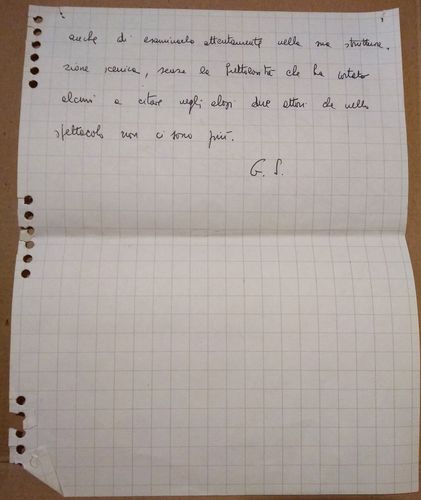 anche di esaminarlo attentamente nella sua struttura-
zione scenica, senza la frettolosità che ha portato
alcuni a citare negli elogi due attori che nello
spettacolo non ci sono più.
G. S.